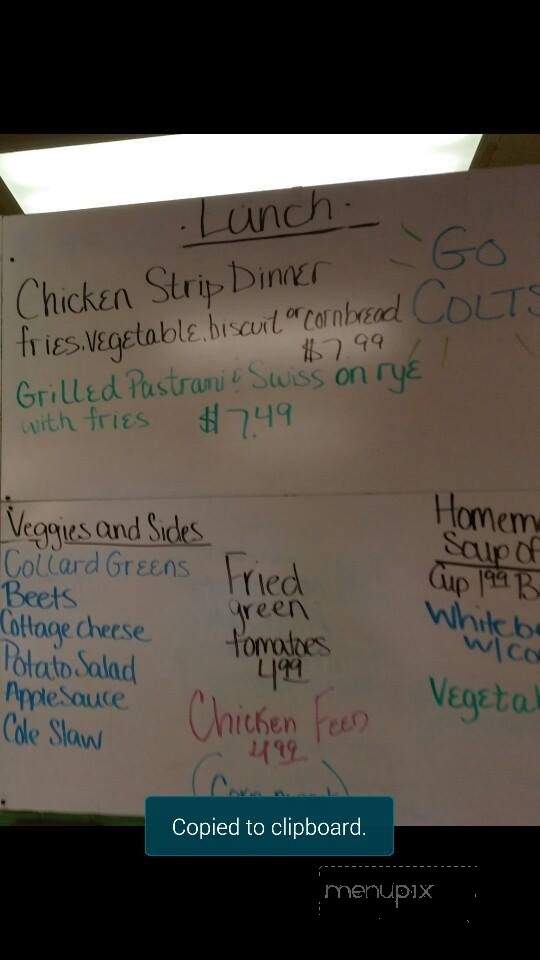 . Lunch .
Go
COLTS
Chicken Strip Dinner
fries. vegetable. biscuit or cornbread
$7.99
Grilled Pastrami & Swiss on rye
with fries $7.49
Veggies and Sides
Collard Greens
Beets
Cottage cheese
Potato Salad
Apple Sauce
Cole Slaw
Fried
green
tomatoes
4.99
Chicken Feed
4.99
Homem
Soup of
Cup 1.99 B
White be
w/ co
Vegetal
Copied to clipboard.
menupix